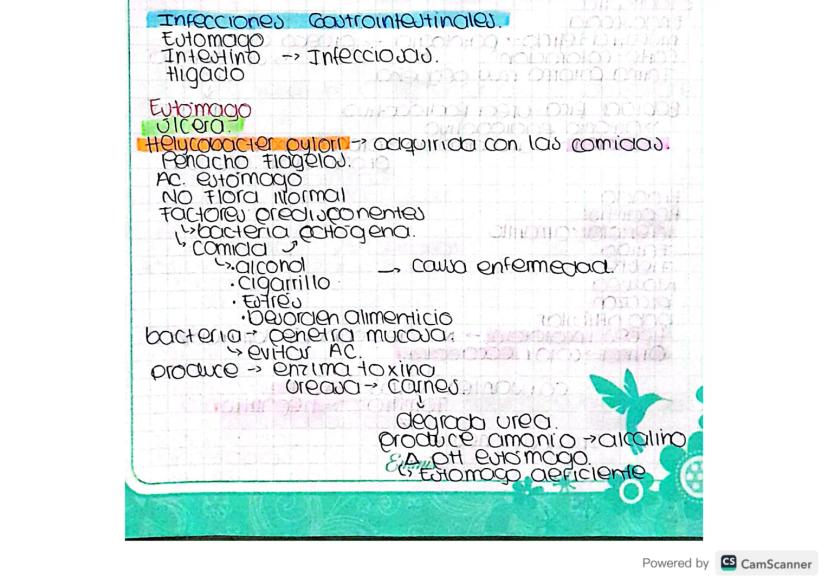 Infecciones Gastrointestinales.
Estomago
Intestino → Infecciosas.
Higado
Estomago
Ulcera.
Helycobacter pylori → adquirida con las comidas.
Penacho Flagelos.
AC. estomago
NO Flora Normal
Factores predisponentes
↳ bacteria patogena.
↳ comida
↳ • alcohol → causa enfermedad.
• Cigarrillo
• Estrés
• Desorden alimenticio
bacteria → penetra mucosa.
↳ evitar AC.
produce → enzima toxina
ureasa → carnes.
↓
degrada urea.
produce amonio → alcalino
Δ pH estomago.
↳ Estomago deficiente
Powered by CS CamScanner